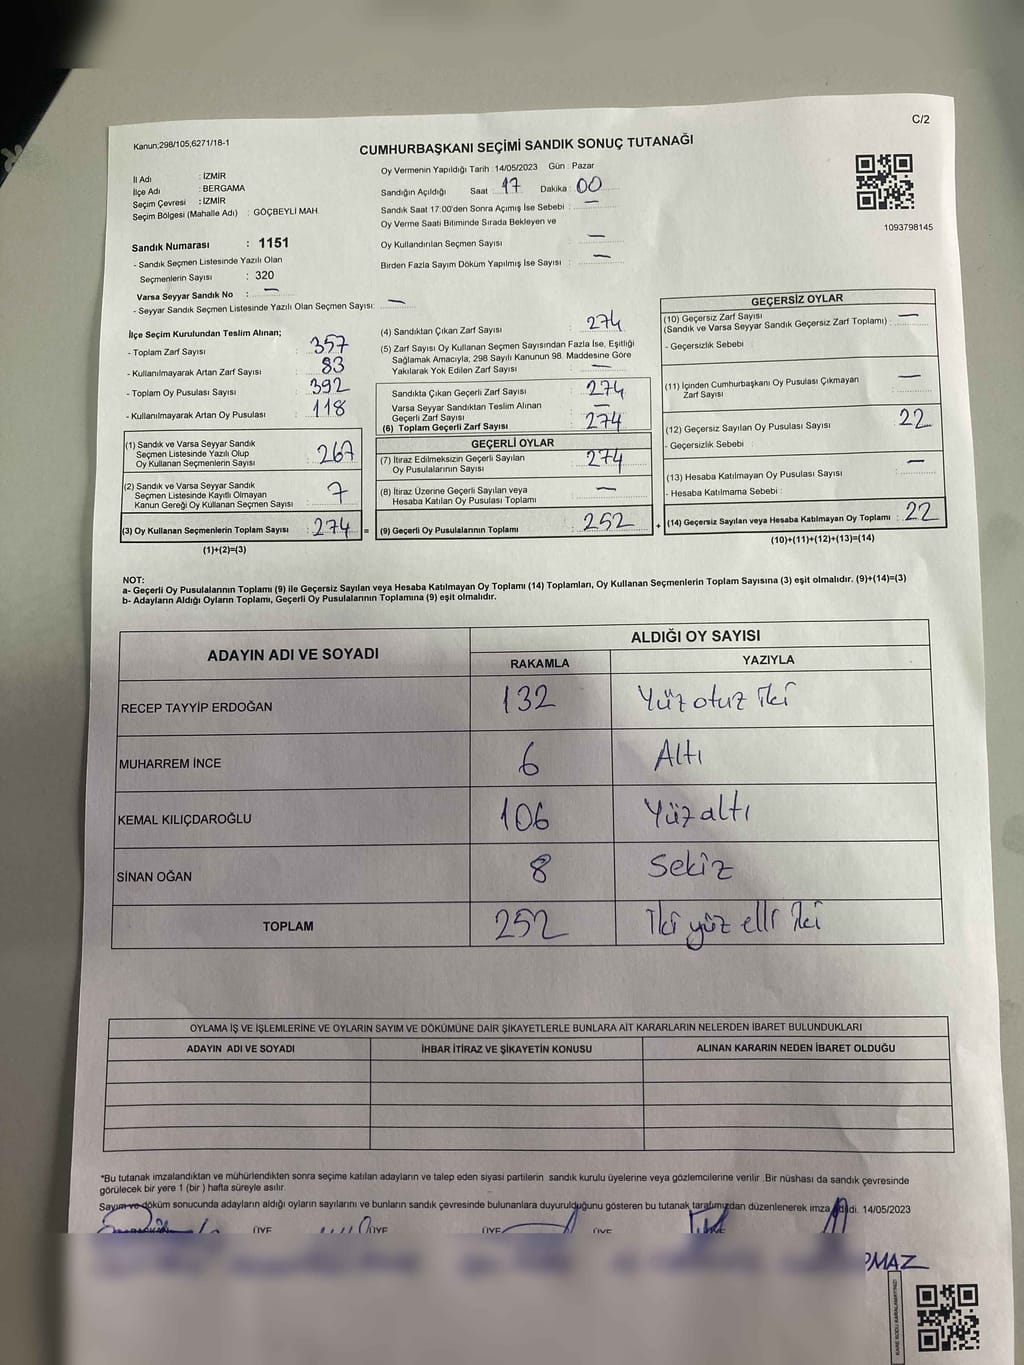 C/2
Kanun;298/105,6271/18-1
CUMHURBAŞKANI SEÇİMİ SANDIK SONUÇ TUTANAĞI
İl Adı : İZMİR
İlçe Adı : BERGAMA
Seçim Çevresi : İZMİR
Seçim Bölgesi (Mahalle Adı) : GÖÇBEYLİ MAH.
Oy Vermenin Yapıldığı Tarih : 14/05/2023 Gün : Pazar
Sandığın Açıldığı Saat : 17 Dakika : 00
Sandık Saat 17:00'den Sonra Açımış İse Sebebi : —
Oy Verme Saati Bitiminde Sırada Bekleyen ve
Oy Kullandırılan Seçmen Sayısı : —
Birden Fazla Sayım Döküm Yapılmış İse Sayısı : —
1093798145
Sandık Numarası : 1151
- Sandık Seçmen Listesinde Yazılı Olan
Seçmenlerin Sayısı : 320
Varsa Seyyar Sandık No : —
- Seyyar Sandık Seçmen Listesinde Yazılı Olan Seçmen Sayısı: —
İlçe Seçim Kurulundan Teslim Alınan;
- Toplam Zarf Sayısı : 357
- Kullanılmayarak Artan Zarf Sayısı : 83
- Toplam Oy Pusulası Sayısı : 392
- Kullanılmayarak Artan Oy Pusulası : 118
(1) Sandık ve Varsa Seyyar Sandık
Seçmen Listesinde Yazılı Olup
Oy Kullanan Seçmenlerin Sayısı : 267
(2) Sandık ve Varsa Seyyar Sandık
Seçmen Listesinde Kayıtlı Olmayan
Kanun Gereği Oy Kullanan Seçmen Sayısı : 7
(3) Oy Kullanan Seçmenlerin Toplam Sayısı : 274 =
(1)+(2)=(3)
(4) Sandıktan Çıkan Zarf Sayısı : 274
(5) Zarf Sayısı Oy Kullanan Seçmen Sayısından Fazla İse, Eşitliği
Sağlamak Amacıyla; 298 Sayılı Kanunun 98. Maddesine Göre
Yakılarak Yok Edilen Zarf Sayısı : —
Sandıkta Çıkan Geçerli Zarf Sayısı : 274
Varsa Seyyar Sandıktan Teslim Alınan
Geçerli Zarf Sayısı : —
(6) Toplam Geçerli Zarf Sayısı : 274
GEÇERLİ OYLAR
(7) İtiraz Edilmeksizin Geçerli Sayılan
Oy Pusulalarının Sayısı : 274
(8) İtiraz Üzerine Geçerli Sayılan veya
Hesaba Katılan Oy Pusulası Toplamı : —
(9) Geçerli Oy Pusulalarının Toplamı : 252 +
GEÇERSİZ OYLAR
(10) Geçersiz Zarf Sayısı
(Sandık ve Varsa Seyyar Sandık Geçersiz Zarf Toplamı) : —
- Geçersizlik Sebebi :
(11) İçinden Cumhurbaşkanı Oy Pusulası Çıkmayan
Zarf Sayısı : —
(12) Geçersiz Sayılan Oy Pusulası Sayısı : 22
- Geçersizlik Sebebi :
(13) Hesaba Katılmayan Oy Pusulası Sayısı : —
- Hesaba Katılmama Sebebi :
(14) Geçersiz Sayılan veya Hesaba Katılmayan Oy Toplamı : 22
(10)+(11)+(12)+(13)=(14)
NOT:
a- Geçerli Oy Pusulalarının Toplamı (9) ile Geçersiz Sayılan veya Hesaba Katılmayan Oy Toplamı (14) Toplamları, Oy Kullanan Seçmenlerin Toplam Sayısına (3) eşit olmalıdır. (9)+(14)=(3)
b- Adayların Aldığı Oyların Toplamı, Geçerli Oy Pusulalarının Toplamına (9) eşit olmalıdır.
ADAYIN ADI VE SOYADI ALDIĞI OY SAYISI
RAKAMLA YAZIYLA
RECEP TAYYİP ERDOĞAN 132 Yüz otuz iki
MUHARREM İNCE 6 Altı
KEMAL KILIÇDAROĞLU 106 Yüz altı
SİNAN OĞAN 8 Sekiz
TOPLAM 252 İki yüz elli iki
OYLAMA İŞ VE İŞLEMLERİNE VE OYLARIN SAYIM VE DÖKÜMÜNE DAİR ŞİKAYETLERLE BUNLARA AİT KARARLARIN NELERDEN İBARET BULUNDUKLARI
ADAYIN ADI VE SOYADI İHBAR İTİRAZ VE ŞİKAYETİN KONUSU ALINAN KARARIN NEDEN İBARET OLDUĞU
*Bu tutanak imzalandıktan ve mühürlendikten sonra seçime katılan adayların ve talep eden siyasi partilerin sandık kurulu üyelerine veya gözlemcilerine verilir .Bir nüshası da sandık çevresinde
görülecek bir yere 1 (bir ) hafta süreyle asılır.
Sayım ve döküm sonucunda adayların aldığı oyların sayılarını ve bunların sandık çevresinde bulunanlara duyurulduğunu gösteren bu tutanak tarafımızdan düzenlenerek imza edildi. 14/05/2023
ÜYE ÜYE ÜYE ÜYE